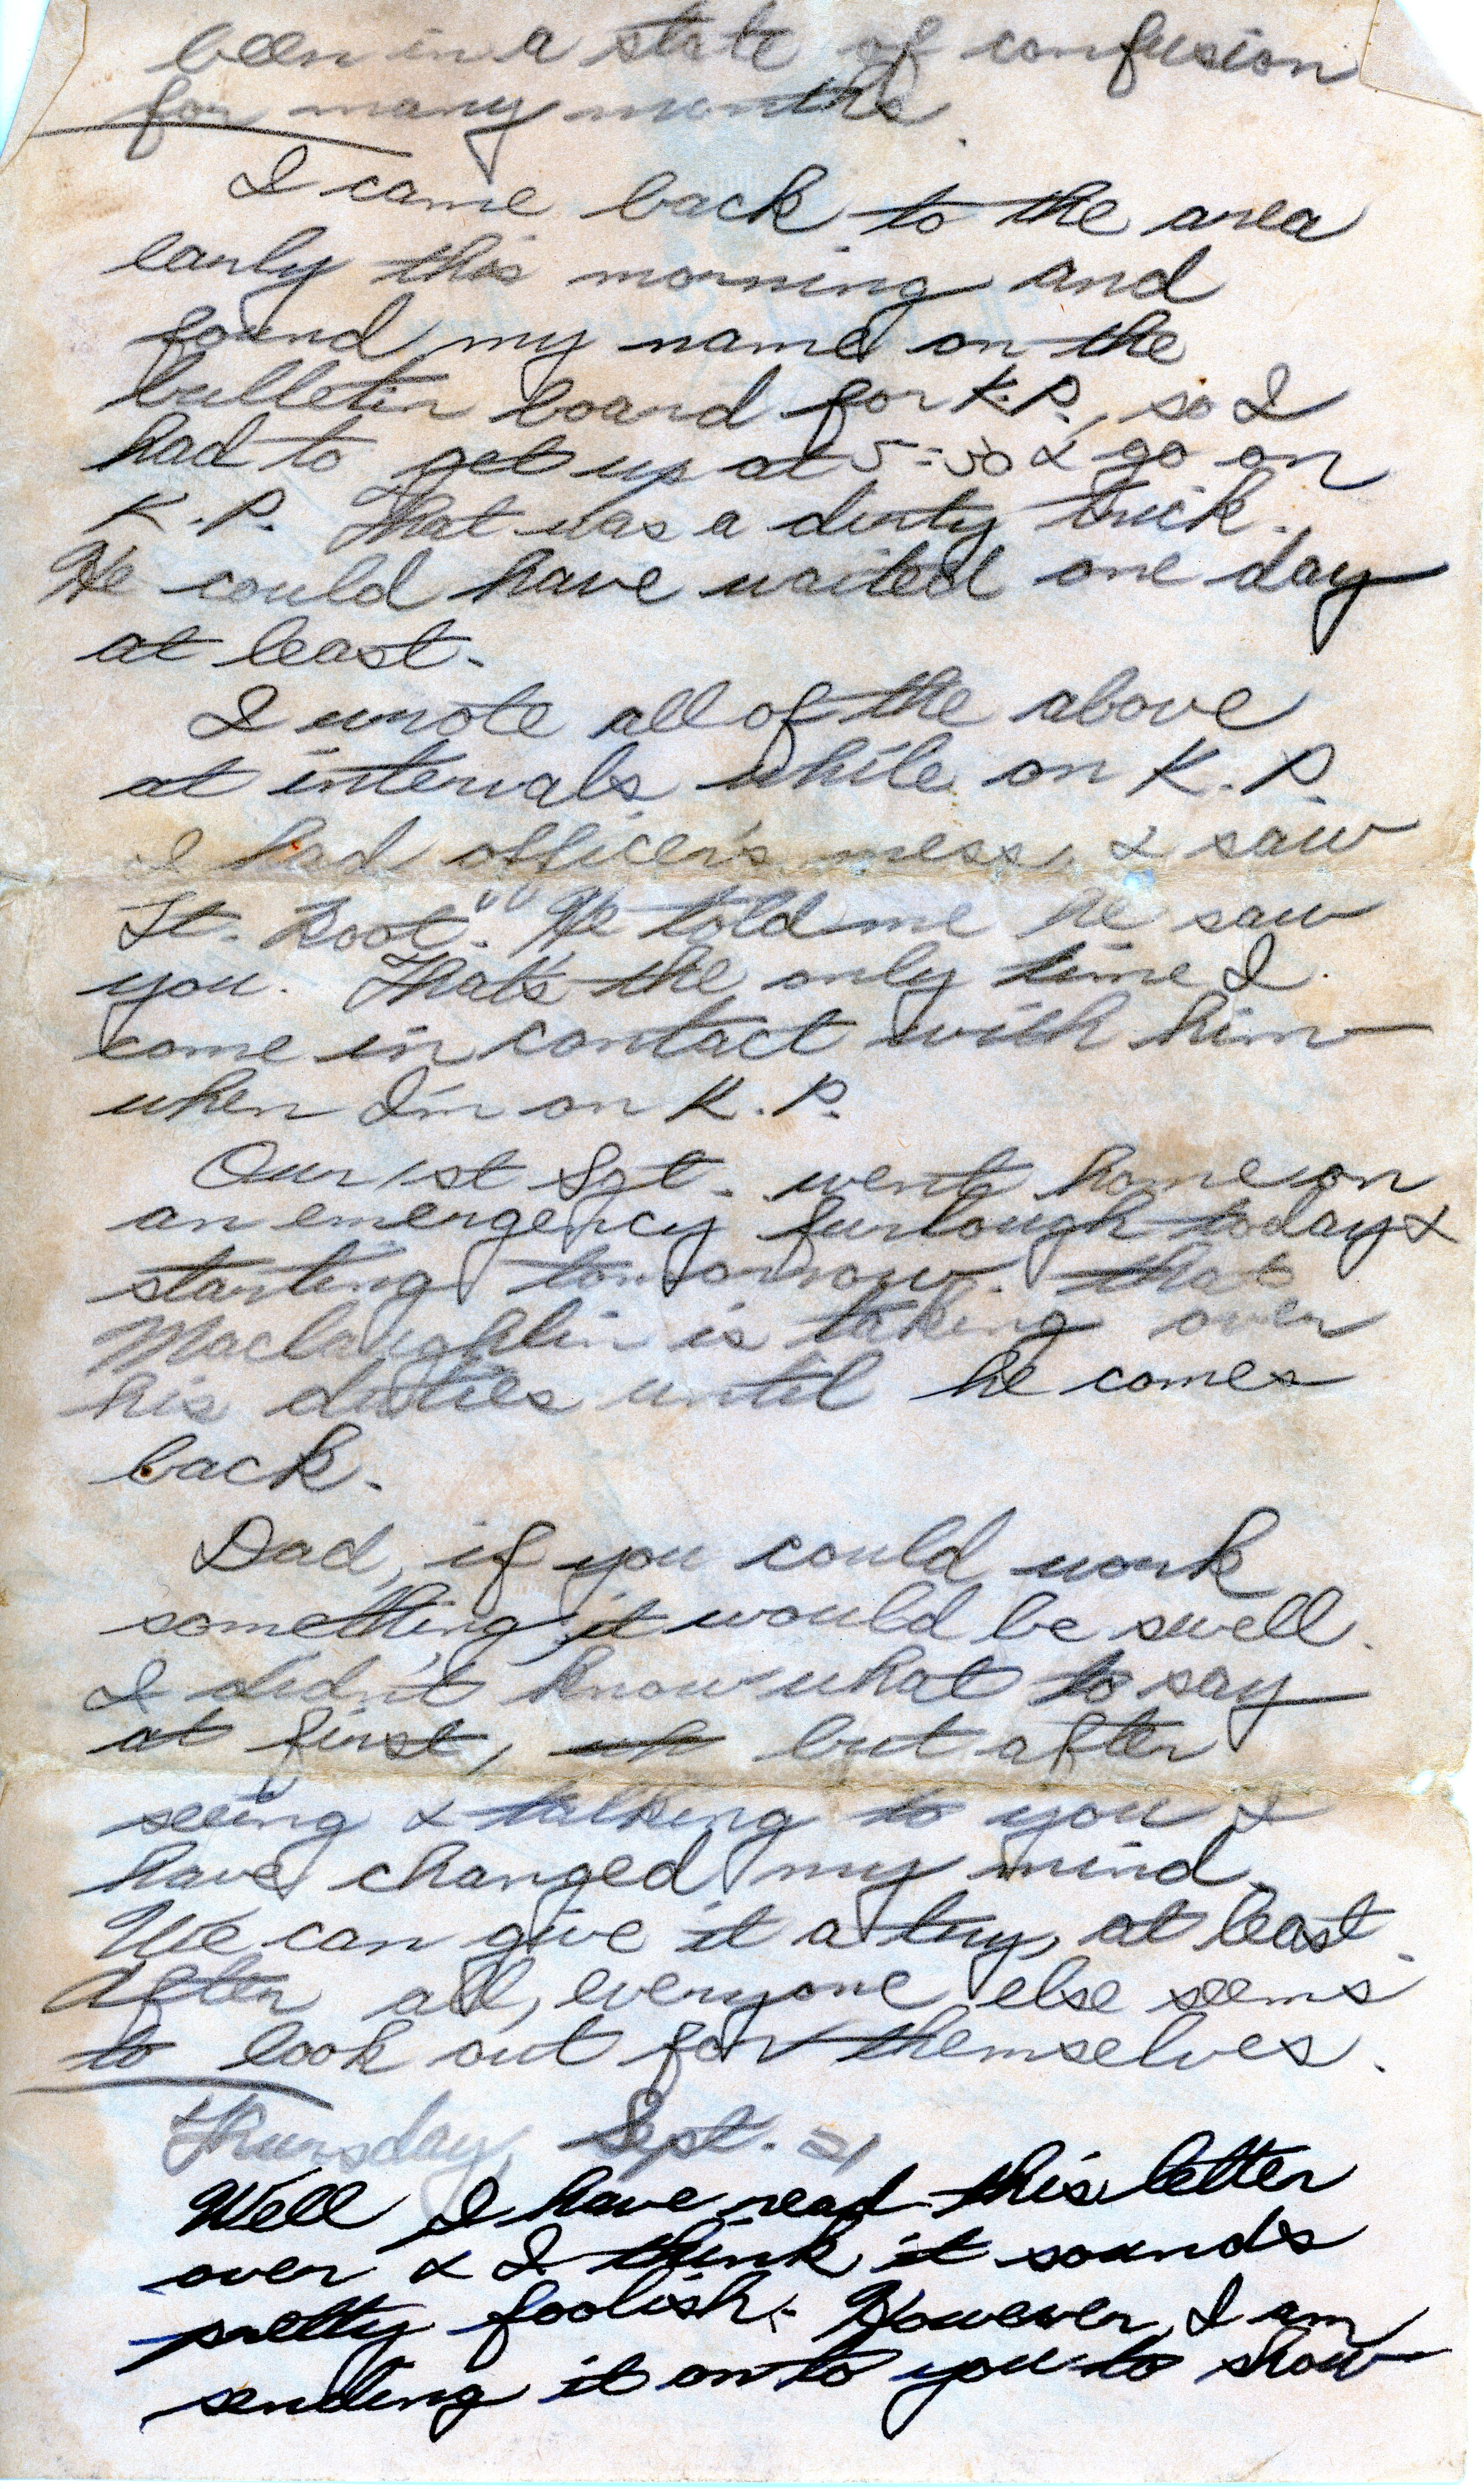 been in a state of confusion
for many months.
I came back to the area
early this morning and
found my name on the
bulletin board for K.P., so I
had to get up at 5:30 & go on
K.P. That was a dirty trick.
He could have waited one day
at least.
I wrote all of the above
at intervals while on K.P.
I had officer's mess, & saw
Lt. Root. He told me he saw
you. That's the only time I
come in contact with him
when I'm on K.P.
Our 1st Sgt. went home on
an emergency furlough today &
starting tomorrow. that
Maclaughlin is taking over
his duties until he comes
back.
Dad, if you could work
something, it would be swell.
I didn't know what to say
at first, but after
seeing & talking to you I
have changed my mind.
We can give it a try, at least.
After all, everyone else seems
to look out for themselves.
Thursday, Sept. 21
Well I have read this letter
over & I think it sounds
pretty foolish. However, I am
sending it on to you to show